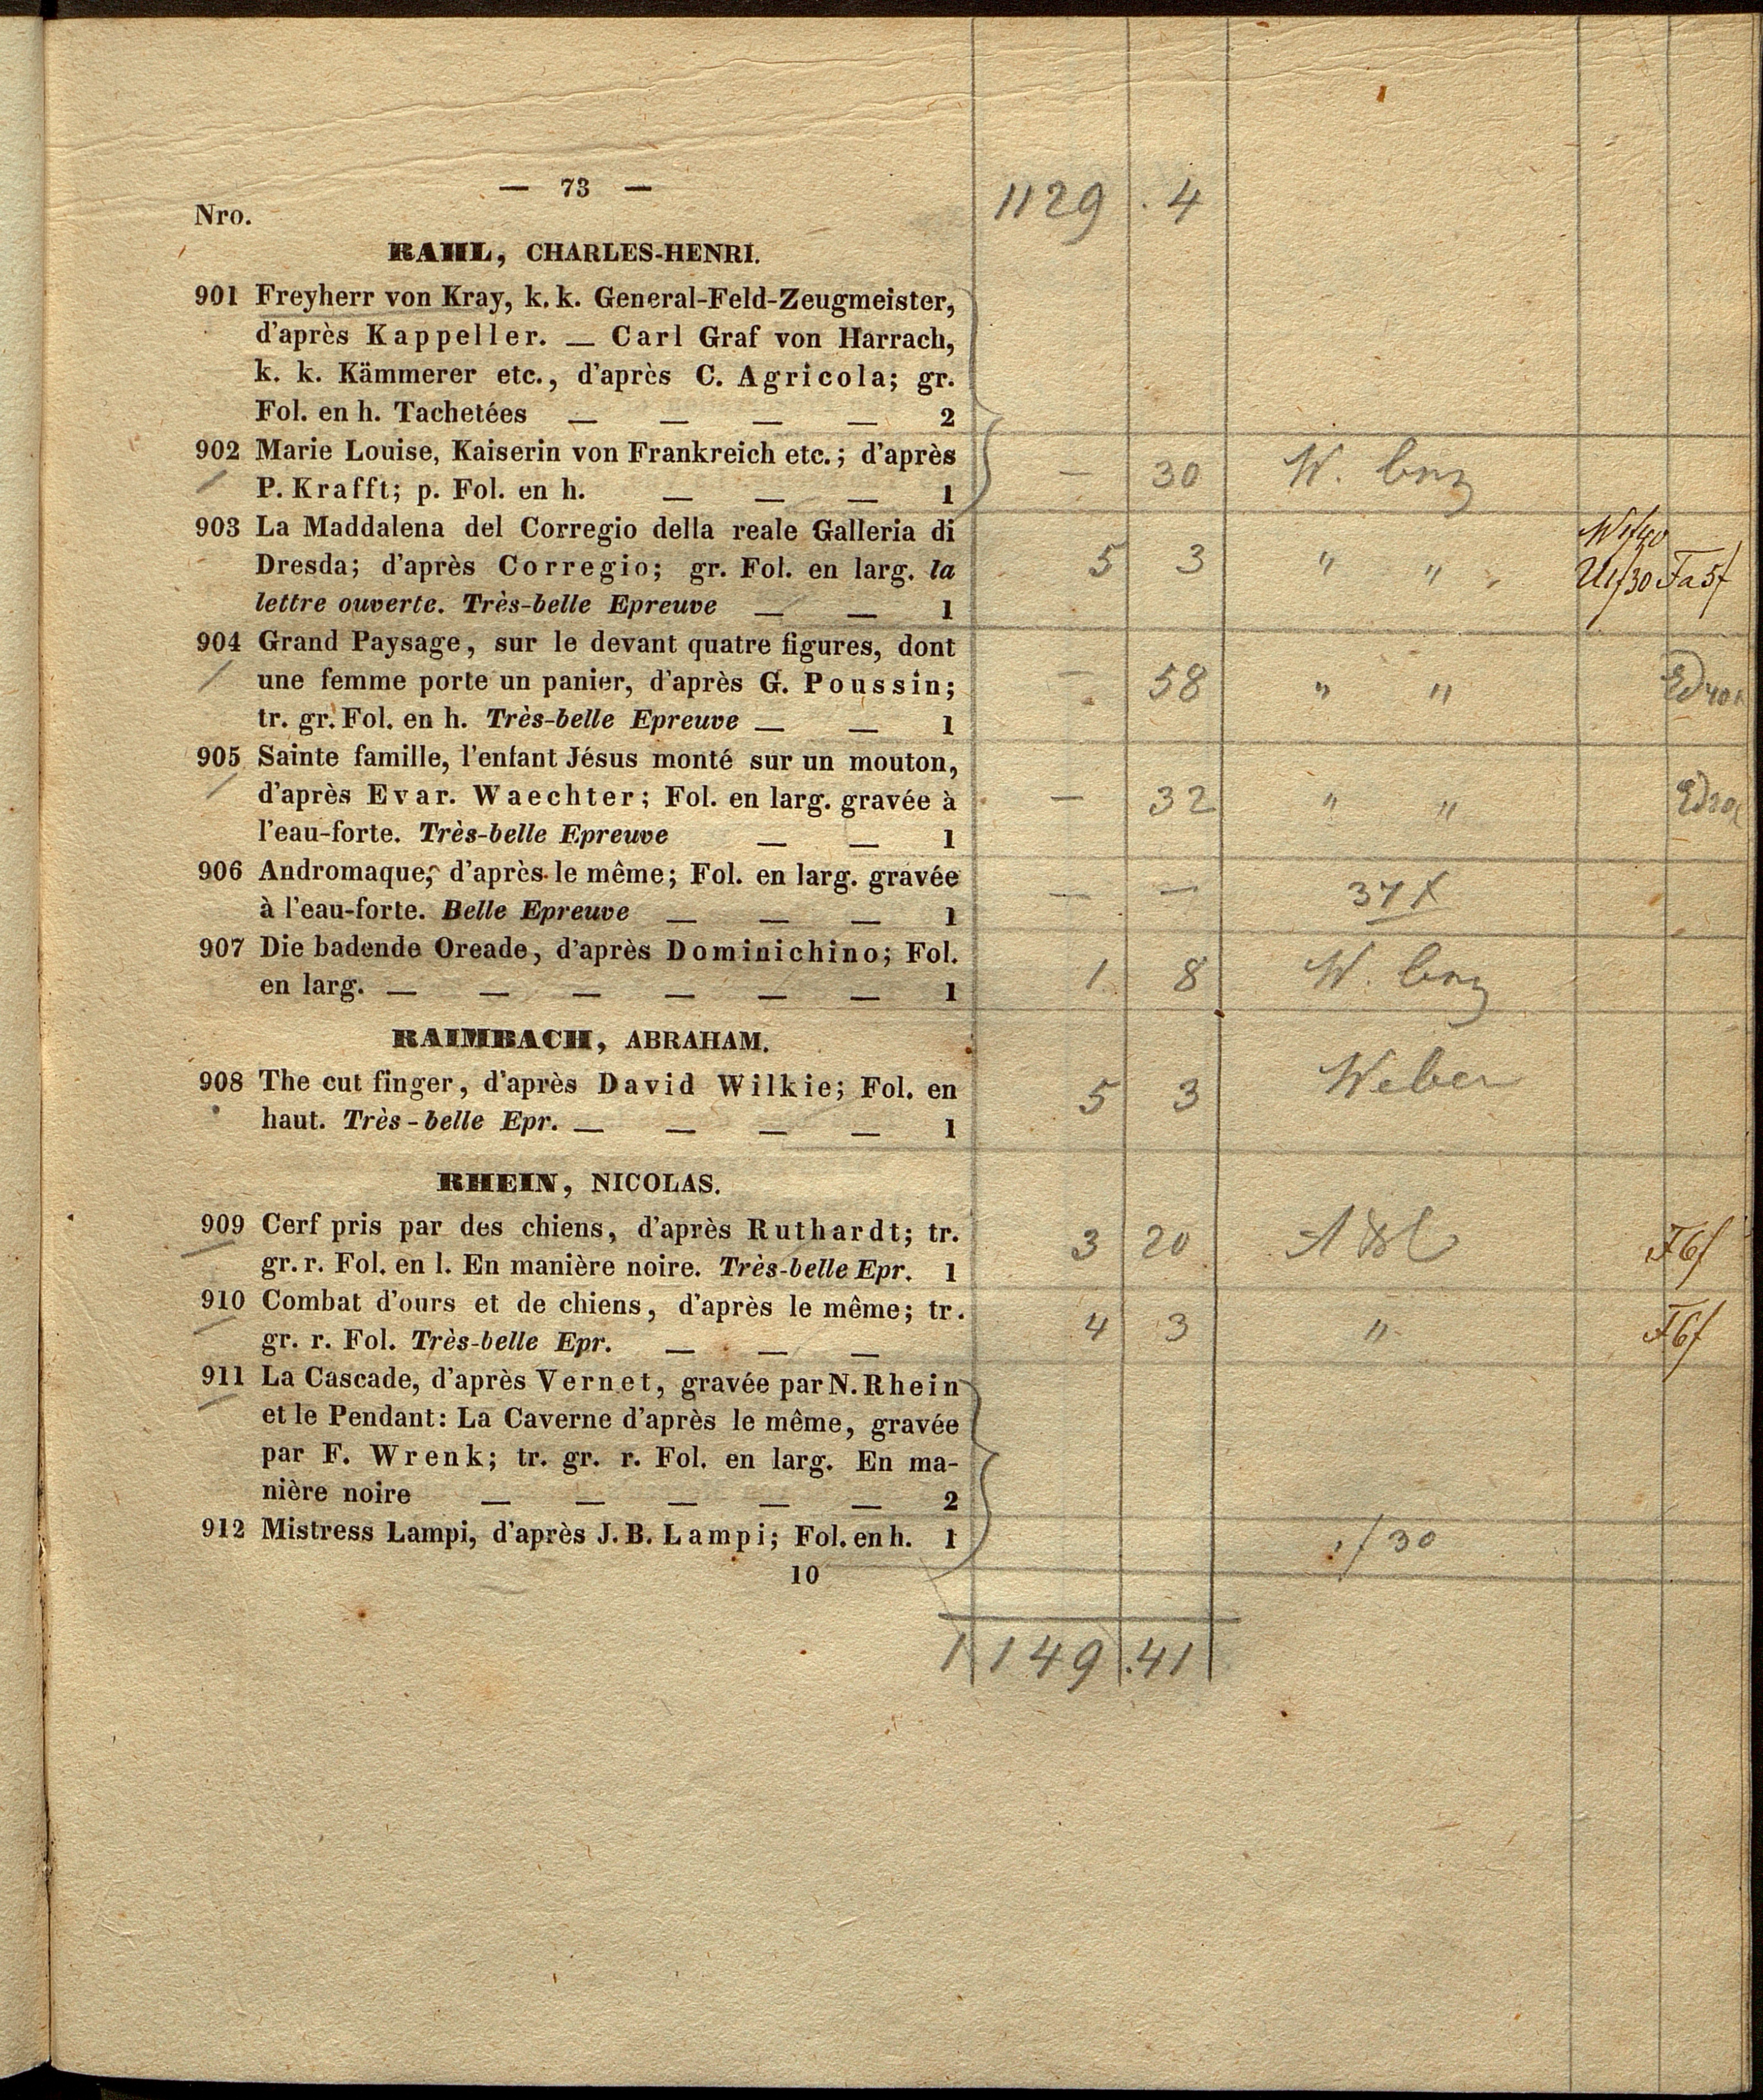 — 73 — 1129 . 4
Nro.
RAHL, CHARLES-HENRI.
901 Freyherr von Kray, k. k. General-Feld-Zeugmeister,
d'après Kappeller. — Carl Graf von Harrach,
k. k. Kämmerer etc., d'après C. Agricola; gr.
Fol. en h. Tachetées — — — — 2
902 Marie Louise, Kaiserin von Frankreich etc.; d'après
P. Krafft; p. Fol. en h. — — — 1 — 30 W.
903 La Maddalena del Corregio della reale Galleria di
Dresda; d'après Corregio; gr. Fol. en larg. la 5 3 " "
lettre ouverte. Très-belle Epreuve — — 1
904 Grand Paysage, sur le devant quatre figures, dont
une femme porte un panier, d'après G. Poussin; — 58 " "
tr. gr. Fol. en h. Très-belle Epreuve — — 1
905 Sainte famille, l'enfant Jésus monté sur un mouton,
d'après Evar. Waechter; Fol. en larg. gravée à — 32 " "
l'eau-forte. Très-belle Epreuve — — 1
906 Andromaque, d'après le même; Fol. en larg. gravée — —
à l'eau-forte. Belle Epreuve — — — 1
907 Die badende Oreade, d'après Dominichino; Fol. 1 8 W.
en larg. — — — — — — 1
RAIMBACH, ABRAHAM.
908 The cut finger, d'après David Wilkie; Fol. en 5 3 Weber
haut. Très-belle Epr. — — — — 1
RHEIN, NICOLAS.
909 Cerf pris par des chiens, d'après Ruthardt; tr. 3 20
gr. r. Fol. en l. En manière noire. Très-belle Epr. 1
910 Combat d'ours et de chiens, d'après le même; tr. 4 3 "
gr. r. Fol. Très-belle Epr. — — —
911 La Cascade, d'après Vernet, gravée par N. Rhein
et le Pendant: La Caverne d'après le même, gravée
par F. Wrenk; tr. gr. r. Fol. en larg. En ma-
nière noire — — — — — 2
912 Mistress Lampi, d'après J. B. Lampi; Fol. en h. 1
10
1149 . 41